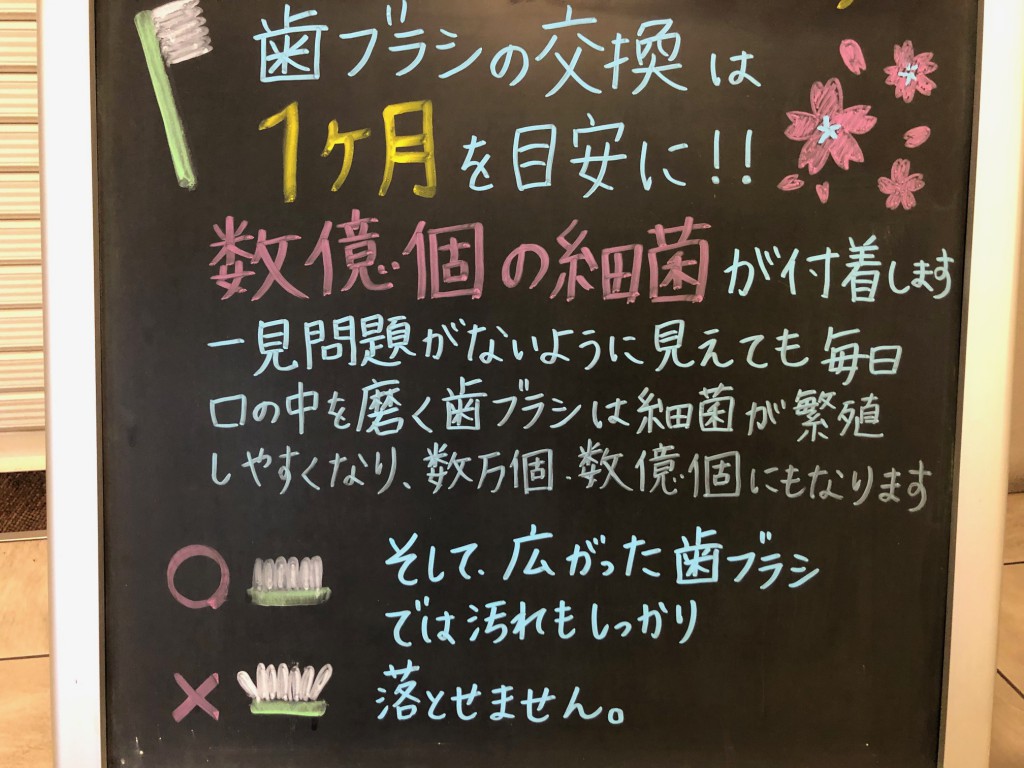 歯ブラシの交換は
1ヶ月を目安に!!
数億個の細菌が付着します
一見問題がないように見えても毎日
口の中を磨く歯ブラシは細菌が繁殖
しやすくなり、数万個・数億個にもなります
そして、広がった歯ブラシ
では汚れもしっかり
落とせません。